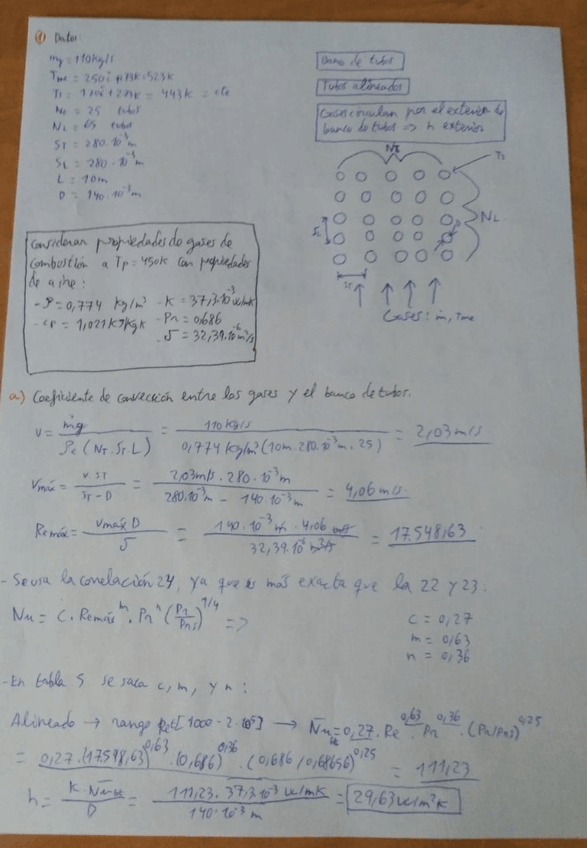 ① Datos:
ṁg = 110 kg/s
Tme = 250 + 273K = 523K
Ts = 170 + 273K = 443K = cte
NT = 25 tubos
NL = 65 tubos
ST = 280·10⁻³m
SL = 280·10⁻³m
L = 10m
D = 140·10⁻³m
Banco de tubos
Tubos alineados
Gases circulan por el exterior de
banco de tubos ⇒ h exterior
NT
Ts
NL
SL
D
ST
Gases: ṁ, Tme
Consideran propiedades de gases de
combustión a Tp = 450K con propiedades
de aire:
- ρ = 0,774 kg/m³ - K = 37,3·10⁻³ w/mK
- cp = 1,021 KJ/kgK - Pr = 0,686
. ν = 32,39·10⁻⁶ m²/s
a) Coeficiente de convección entre los gases y el banco de tubos.
v = ṁg / ρe (NT·ST·L) = 110 kg/s / 0,774 kg/m³ (10m · 280·10⁻³m · 25) = 2,03 m/s
vmáx = v·ST / ST - D = 2,03m/s · 280·10⁻³m / 280·10⁻³m - 140·10⁻³m = 4,06 m/s
Remáx = vmáx D / ν = 140·10⁻³m · 4,06 m/s / 32,39·10⁻⁶ m²/s = 17.548,63
- Se usa la correlación 24, ya que es más exacta que la 22 y 23.
Nu = C · Remáx^m · Pr^n (Pr/Prs)^1/4 ⇒
c = 0,27
m = 0,63
n = 0,36
- En tabla 5 se saca c, m, y n:
Alineado → rango Re [1000 - 2·10⁵] → Nu = 0,27 · Re^0,63 · Pr^0,36 · (Pr/Prs)^0,25
= 0,27 · (17598,63)^0,63 · (0,686)^0,36 · (0,686/0,68656)^0,25 = 111,23
h = K·Nu / D = 111,23 · 37,3·10⁻³ w/mK / 140·10⁻³ m = 29,63 w/m²K